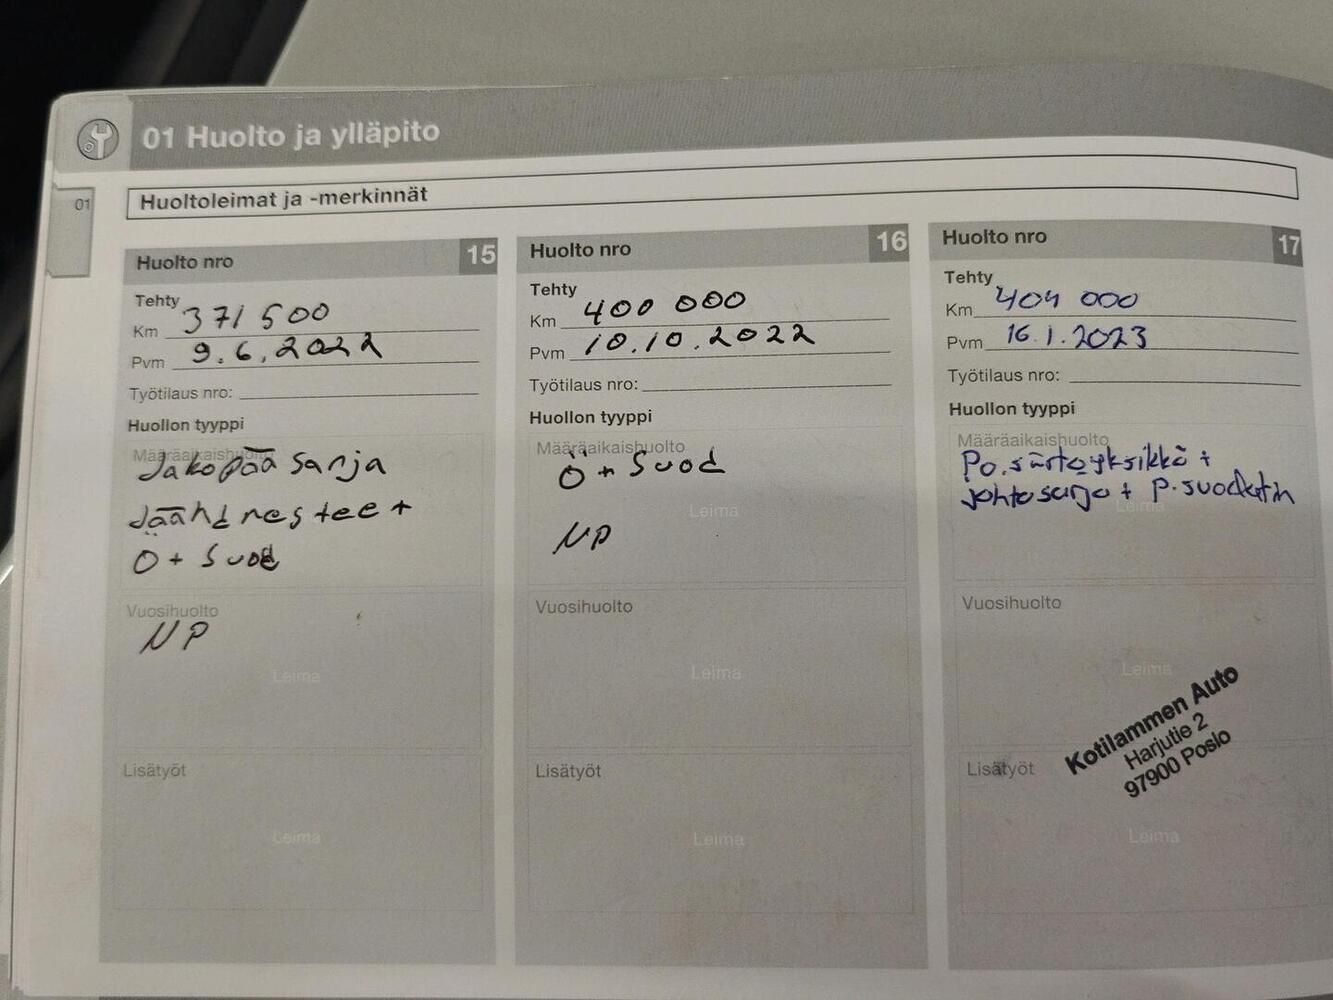 01 Huolto ja ylläpito
01
Huoltoleimat ja -merkinnät
Huolto nro 15
Tehty
Km 371 500
Pvm 9.6.2022
Työtilaus nro:
Huollon tyyppi
Määräaikaishuolto
Jakopää sarja
Jäähdnestee +
Ö + Suod
Vuosihuolto
NP
Leima
Lisätyöt
Leima
Huolto nro 16
Tehty
Km 400 000
Pvm 10.10.2022
Työtilaus nro:
Huollon tyyppi
Määräaikaishuolto
Ö + Suod
Leima
NP
Vuosihuolto
Leima
Lisätyöt
Leima
Huolto nro 17
Tehty
Km 404 000
Pvm 16.1.2023
Työtilaus nro:
Huollon tyyppi
Määräaikaishuolto
Po.siirtoyksikkö +
johtosarja + P.suodatin
Leima
Vuosihuolto
Leima
Kotilammen Auto
Harjutie 2
97900 Posio
Lisätyöt
Leima